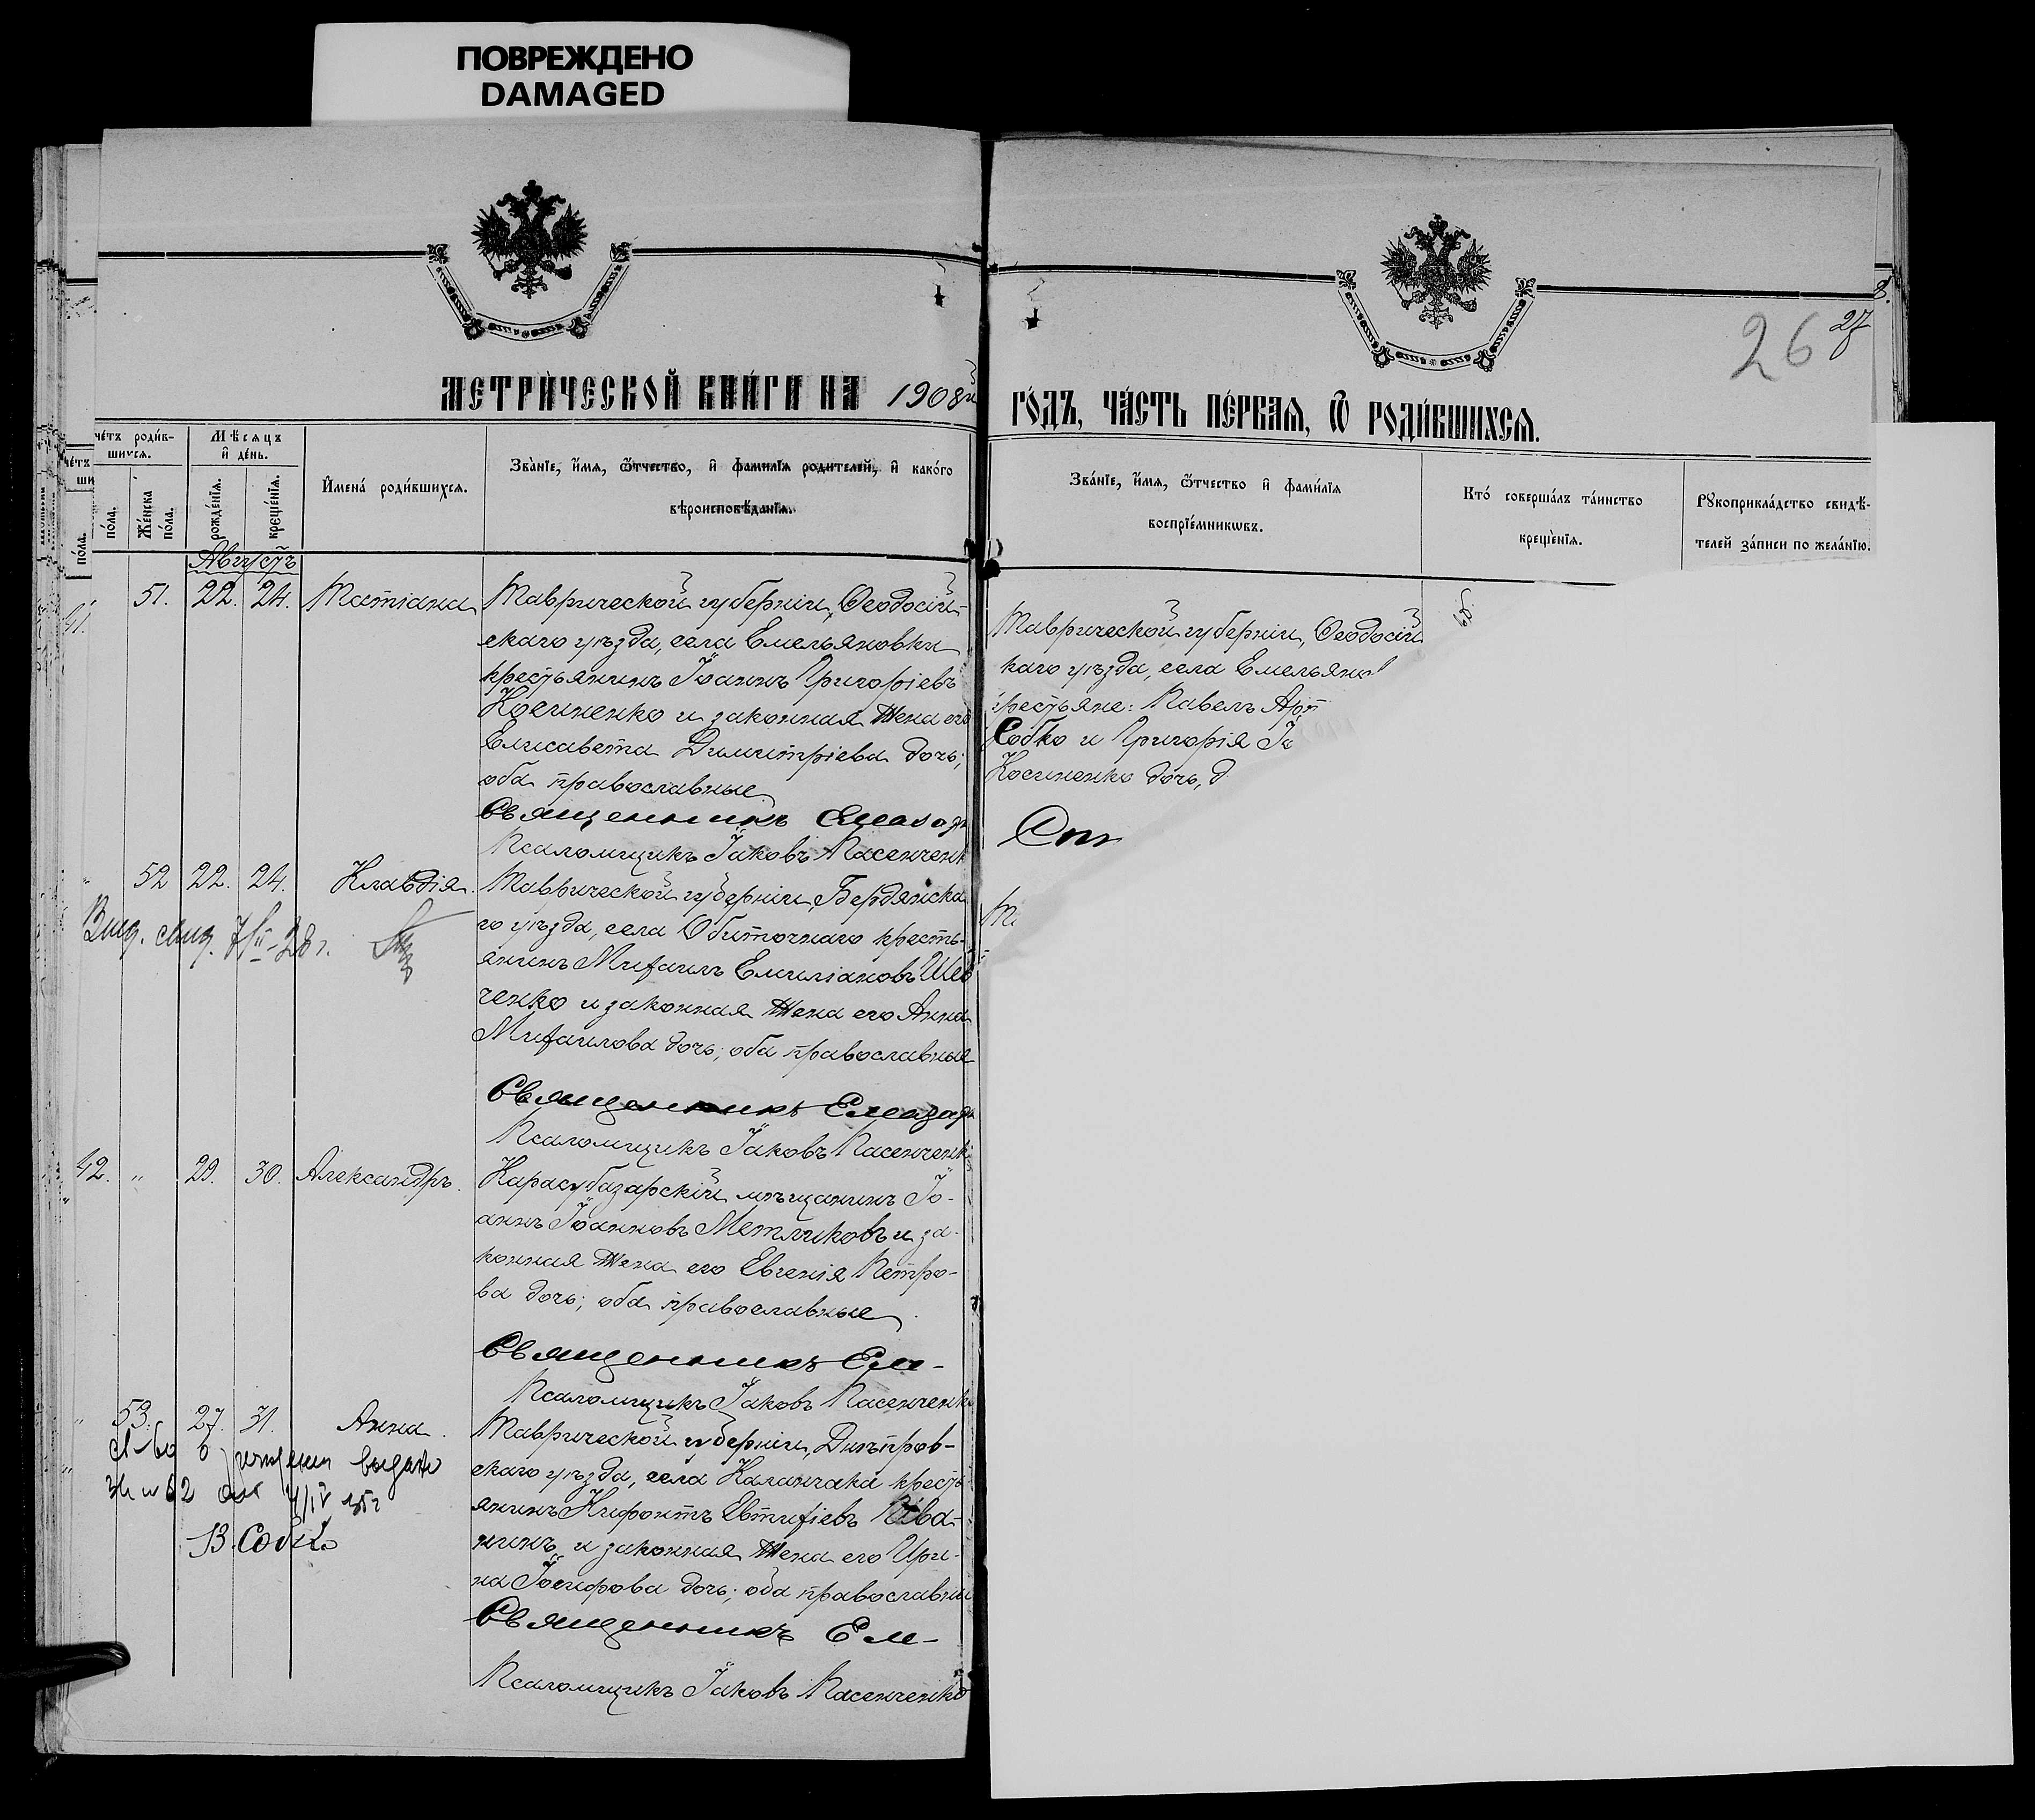 ПОВРЕЖДЕНО
DAMAGED
МЕТРИ́ЧЕСКОЙ КНИ́ГИ НА 1908й
ГО́ДЪ, ЧА́СТЬ ПЕ́РВАЯ, Ѿ РОДИ́ВШИХСЯ.
26 27
че́тъ роди́в-
шихся.
по́ла.
Же́нска по́ла.
Мѣ́сяцъ
и де́нь.
рожде́нїя.
креще́нїя.
И́мена́ роди́вшихся.
Зва́нїе, и́мя, ѻ҆́тчество, и фами́лїя роди́телей, и како́го
вѣроисповѣ́данїя.
Зва́нїе, и́мя, ѻ҆́тчество и фами́лїя
воспрїе́мникѡвъ.
Кто́ соверша́лъ та́инство
креще́нїя.
Рꙋкоприкла́дство свидѣ́-
телей за́писи по жела́нїю.
Августъ
51. 22. 24. Татіана
Таврической губерніи, Ѳеодосій-
скаго уѣзда, села Емельяновки
крестьянинъ Іоаннъ Григоріевъ
Косиненко и законная жена его
Елисавета Димитріева дочь;
оба православные
Священникъ
Псаломщикъ Іаковъ Пасенченк
Таврической губерніи, Ѳеодосій
каго уѣзда, села Емельянов
крестьяне: Павелъ Арт
Собко и Григорія
Косиненко дочь, д
52 22. 24. Клавдія
Выд. свид. 7/II-28 г.
Таврической губерніи, Бердянска
го уѣзда, села Обиточнаго кресть-
янинъ Михаилъ Емиліановъ Шев
ченко и законная жена его Анна
Михаилова дочь; оба православные
Священникъ
Псаломщикъ Іаковъ Пасенченк
42. " 29. 30. Александръ
Карасубазарскій мѣщанинъ Іо-
аннъ Іоанновъ Метликовъ и за-
конная жена его Евгенія Петро-
ва дочь; оба православные
Священникъ Ел-
Псаломщикъ Іаковъ Пасенченк
" 53. 27. 31. Анна
св-во о рождении выдано
В. Собко
Таврической губерніи, Днѣпров-
скаго уѣзда, села Каланчака кресть
янинъ Нифонтъ Евтихіевъ Пива-
нинъ и законная жена его Ири-
на Іосифова дочь; оба православны
Священникъ Ел-
Псаломщикъ Іаковъ Пасенченко